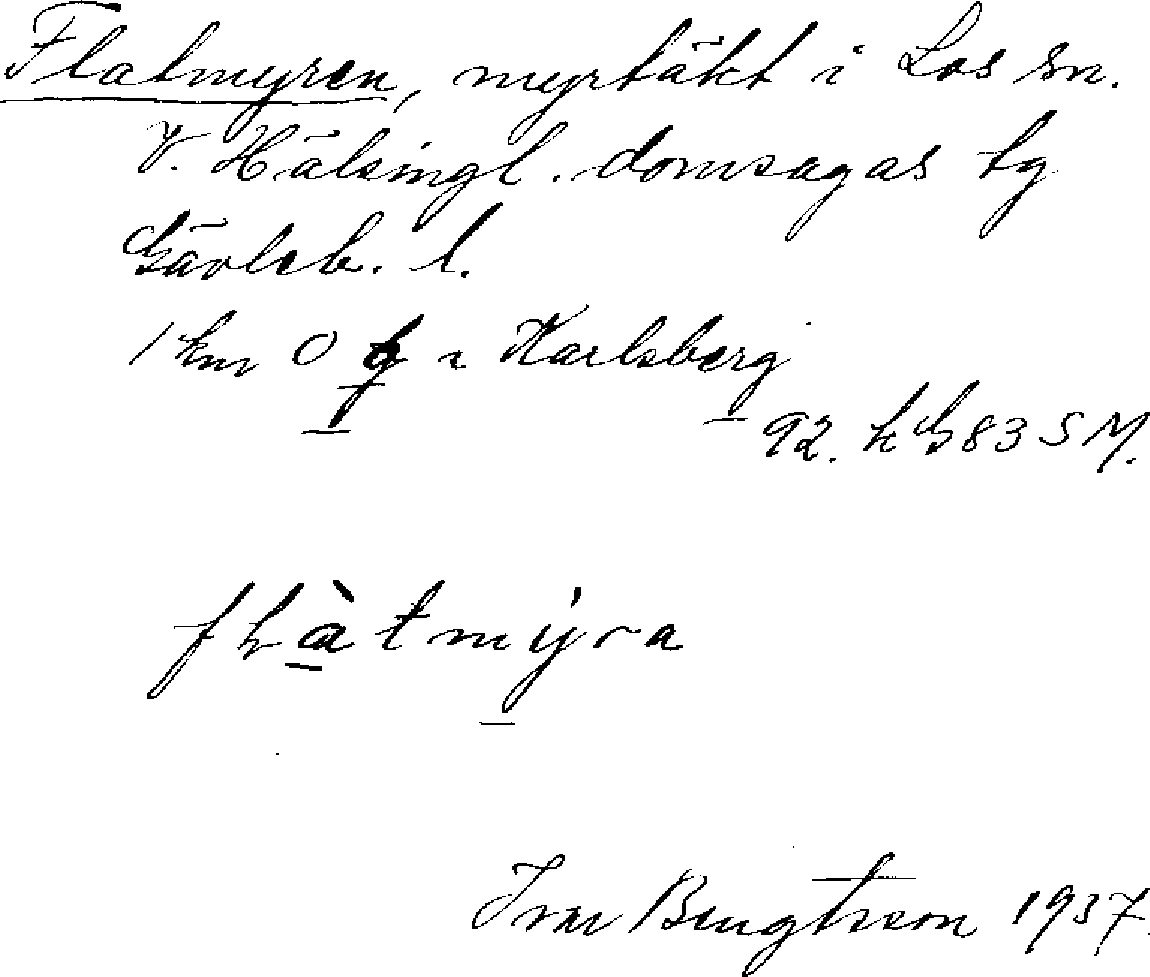 Flatmyren, myrtäkt i Los sn.
V. Hälsingl. domsagas tg
Gävleb. l.
1 km O Karlsberg
92. k G 83 S M.
flàtmýra
Ivar Bengtsson 1937.